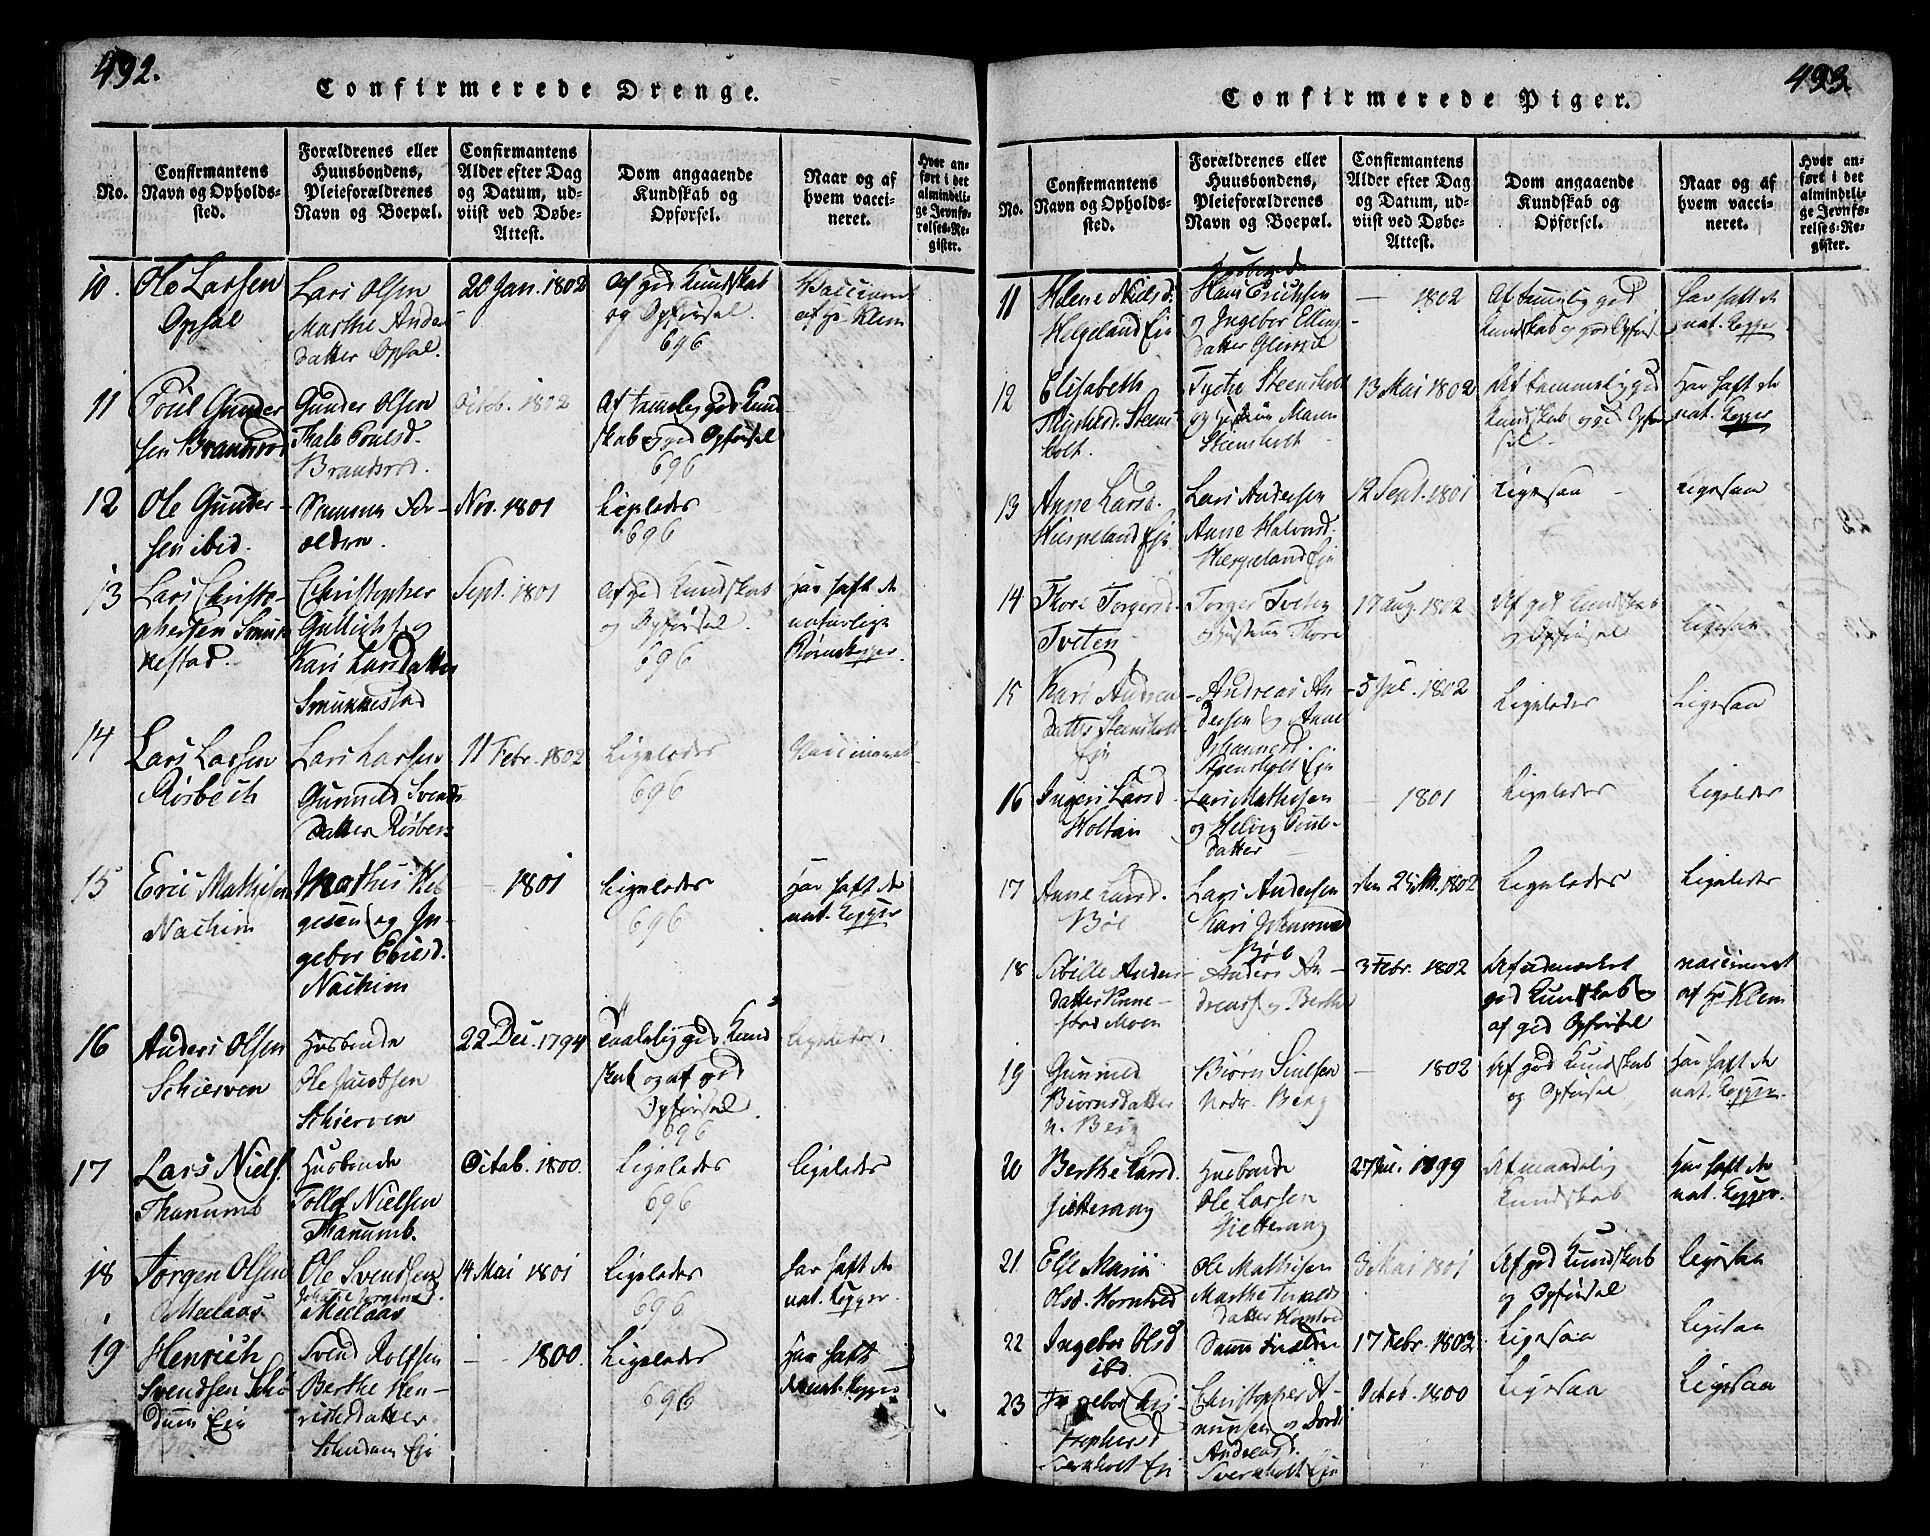 492.
Confirmerede Drenge.
No.
Confirmantens
Navn og Opholds-
sted.
Forældrenes eller
Huusbondens,
Pleieforældrenes
Navn og Boepæl.
Confirmantens
Alder efter Dag
og Datum, ud-
viist ved Døbe-
Attest.
Dom angaaende
Kundskab og
Opførsel.
Naar og af
hvem vacci-
neret.
Hvor an-
ført i det
almindeli-
ge Jevnfø-
relses-Re-
gister.
10.
Ole Larsen
Opsal
Lars Olsen
Marthe Ander
datter Opsal.
20 Jan. 1802
Af god Kundskab
og Opførsel.
696
Vaccineret
af Hr Klem
11
Poul Gunder
sen Brandsrød
Gunder Olsen
Thale Poulsd.
Brandsrød.
Octob. 1802
Af temlig god Kund
skab og god Opførsel
696
12
Ole Gunder-
sen ibid.
Samme For-
ældre.
Nov. 1801
Ligeledes
696
13
Lars Christo-
phersen Smun
nestad.
Christopher
og
Kari Larsdatter
Smunnestad
Sept. 1801
Af god Kundskab
og Opførsel.
696
Har haft de
naturlige
Børnekopper.
14
Lars Larsen
Risbøch
Lars Larsen
Gunnild Svends
datter
11 Febr. 1802
Ligeledes
696
Vaccineret
15
Eric Mathisen
Nachim
Mathis Hel
gesen og In-
gebor Ericsd.
Nachim
- 1801
Ligeledes
696
Har haft de
nat. Kopper
16
Anders Olsen
Schierven
Husbonde
Ole Jacobsen
Schierven
22 Dec. 1794
Taalelig god Kund
skab og af god
Opførsel.
696
Ligeledes
17
Lars Niels.
Thanumb
Husbonde
Tollef Nielsen
Thanumb.
Octob. 1800.
Ligeledes
696
Ligeledes
18
Jørgen Olsen
Meelaas
Ole Svendsen
Meelaas
14 Mai 1801
Ligeledes
696
Har haft de
nat. Kopper.
19
Henrich
Svendsen
Eje
Svend Rolfsen
Berthe Hen-
richsdatter
Eje
- 1800.
Ligeledes
696
Har haft
de nat. Kopper
493.
Confirmerede Piger.
No.
Confirmantens
Navn og Opholds-
sted.
Forældrenes eller
Huusbondens,
Pleieforældrenes
Navn og Boepæl.
Confirmantens
Alder efter Dag
og Datum, ud-
viist ved Døbe-
Attest.
Dom angaaende
Kundskab og
Opførsel.
Naar og af
hvem vacci-
neret.
Hvor an-
ført i det
almindeli-
ge Jevnfø-
relses-Re-
gister.
11
Helene Nielsd.
Helgeland Eje
Hans Erichsen
og Ingebor Elling
datter
- 1802
Af temmelig god
Kundskab og god Opførs.
Har haft de
nat. Kopper
12
Elisabeth
Steens
holt.
Steensholt
og Hustrue Maren
Steensholt
13 Mai 1802
Af temmelig god
Kundskab og god Opfør
sel.
Har haft de
nat. Kopper
13
Anne Larsd.
Eje
Lars Andersen
Anne Halvorsd.
Eje
12 Sept. 1801
Ligesaa
Ligesaa
14
Thore Torgersd.
Tveten
Torger Tveten
Hustrue Thore
17 Aug. 1802
Af god Kundskab
og Opførsel
Ligesaa
15
Kari Andrea
datter Steensholt
Eje
Andreas An-
dersen og Anne
Johannesd.
Steensholt Eje
5 Jul. 1802
Ligeledes
Ligesaa
16
Ingeri Larsd
Holtan
Lars Mathisen
og Helvig Poul-
datter
- 1801
Ligeledes
Ligeledes
17
Anne Larsd.
Bøe
Lars Andersen
Kari Johannesd
Bøe
1802
Ligeledes
Ligeledes
18
Sibille Anders
datter Vinne-
stad Moen
Anders An-
dreas. og Berthe
3 Febr. 1802
Af udmærket
god Kundskab og
af god Opførsel
Vaccineret
af Hr Klem
19
Gunnild
Biørnsdatter
N. Berg
Biørn Siulsen
Nedr. Berg
- 1802
Af god Kundskab
og Opførsel
Har haft de
nat. Kopper.
20
Berthe Larsd.
Gietterang
Husbonde
Ole Larsen
Gietterang
1799
Af maadelig
Kundskab
Har haft de
nat. Kopper.
21
Else Maria
Olsd. Horntved
Ole Mathisen
Marthe
datter Horntved
3 Mai 1801
Af god Kundskab
og Opførsel
Ligesaa
22
Ingebor Olsd
ibd.
Samme Forældre
17 Febr. 1803
Ligesaa
Ligesaa
23
Ingebor Chri-
stophersd
Eje
Christopher A-
mundsen og Dorth
Andreasd.
Eje
Octob. 1800
Ligesaa
Ligesaa